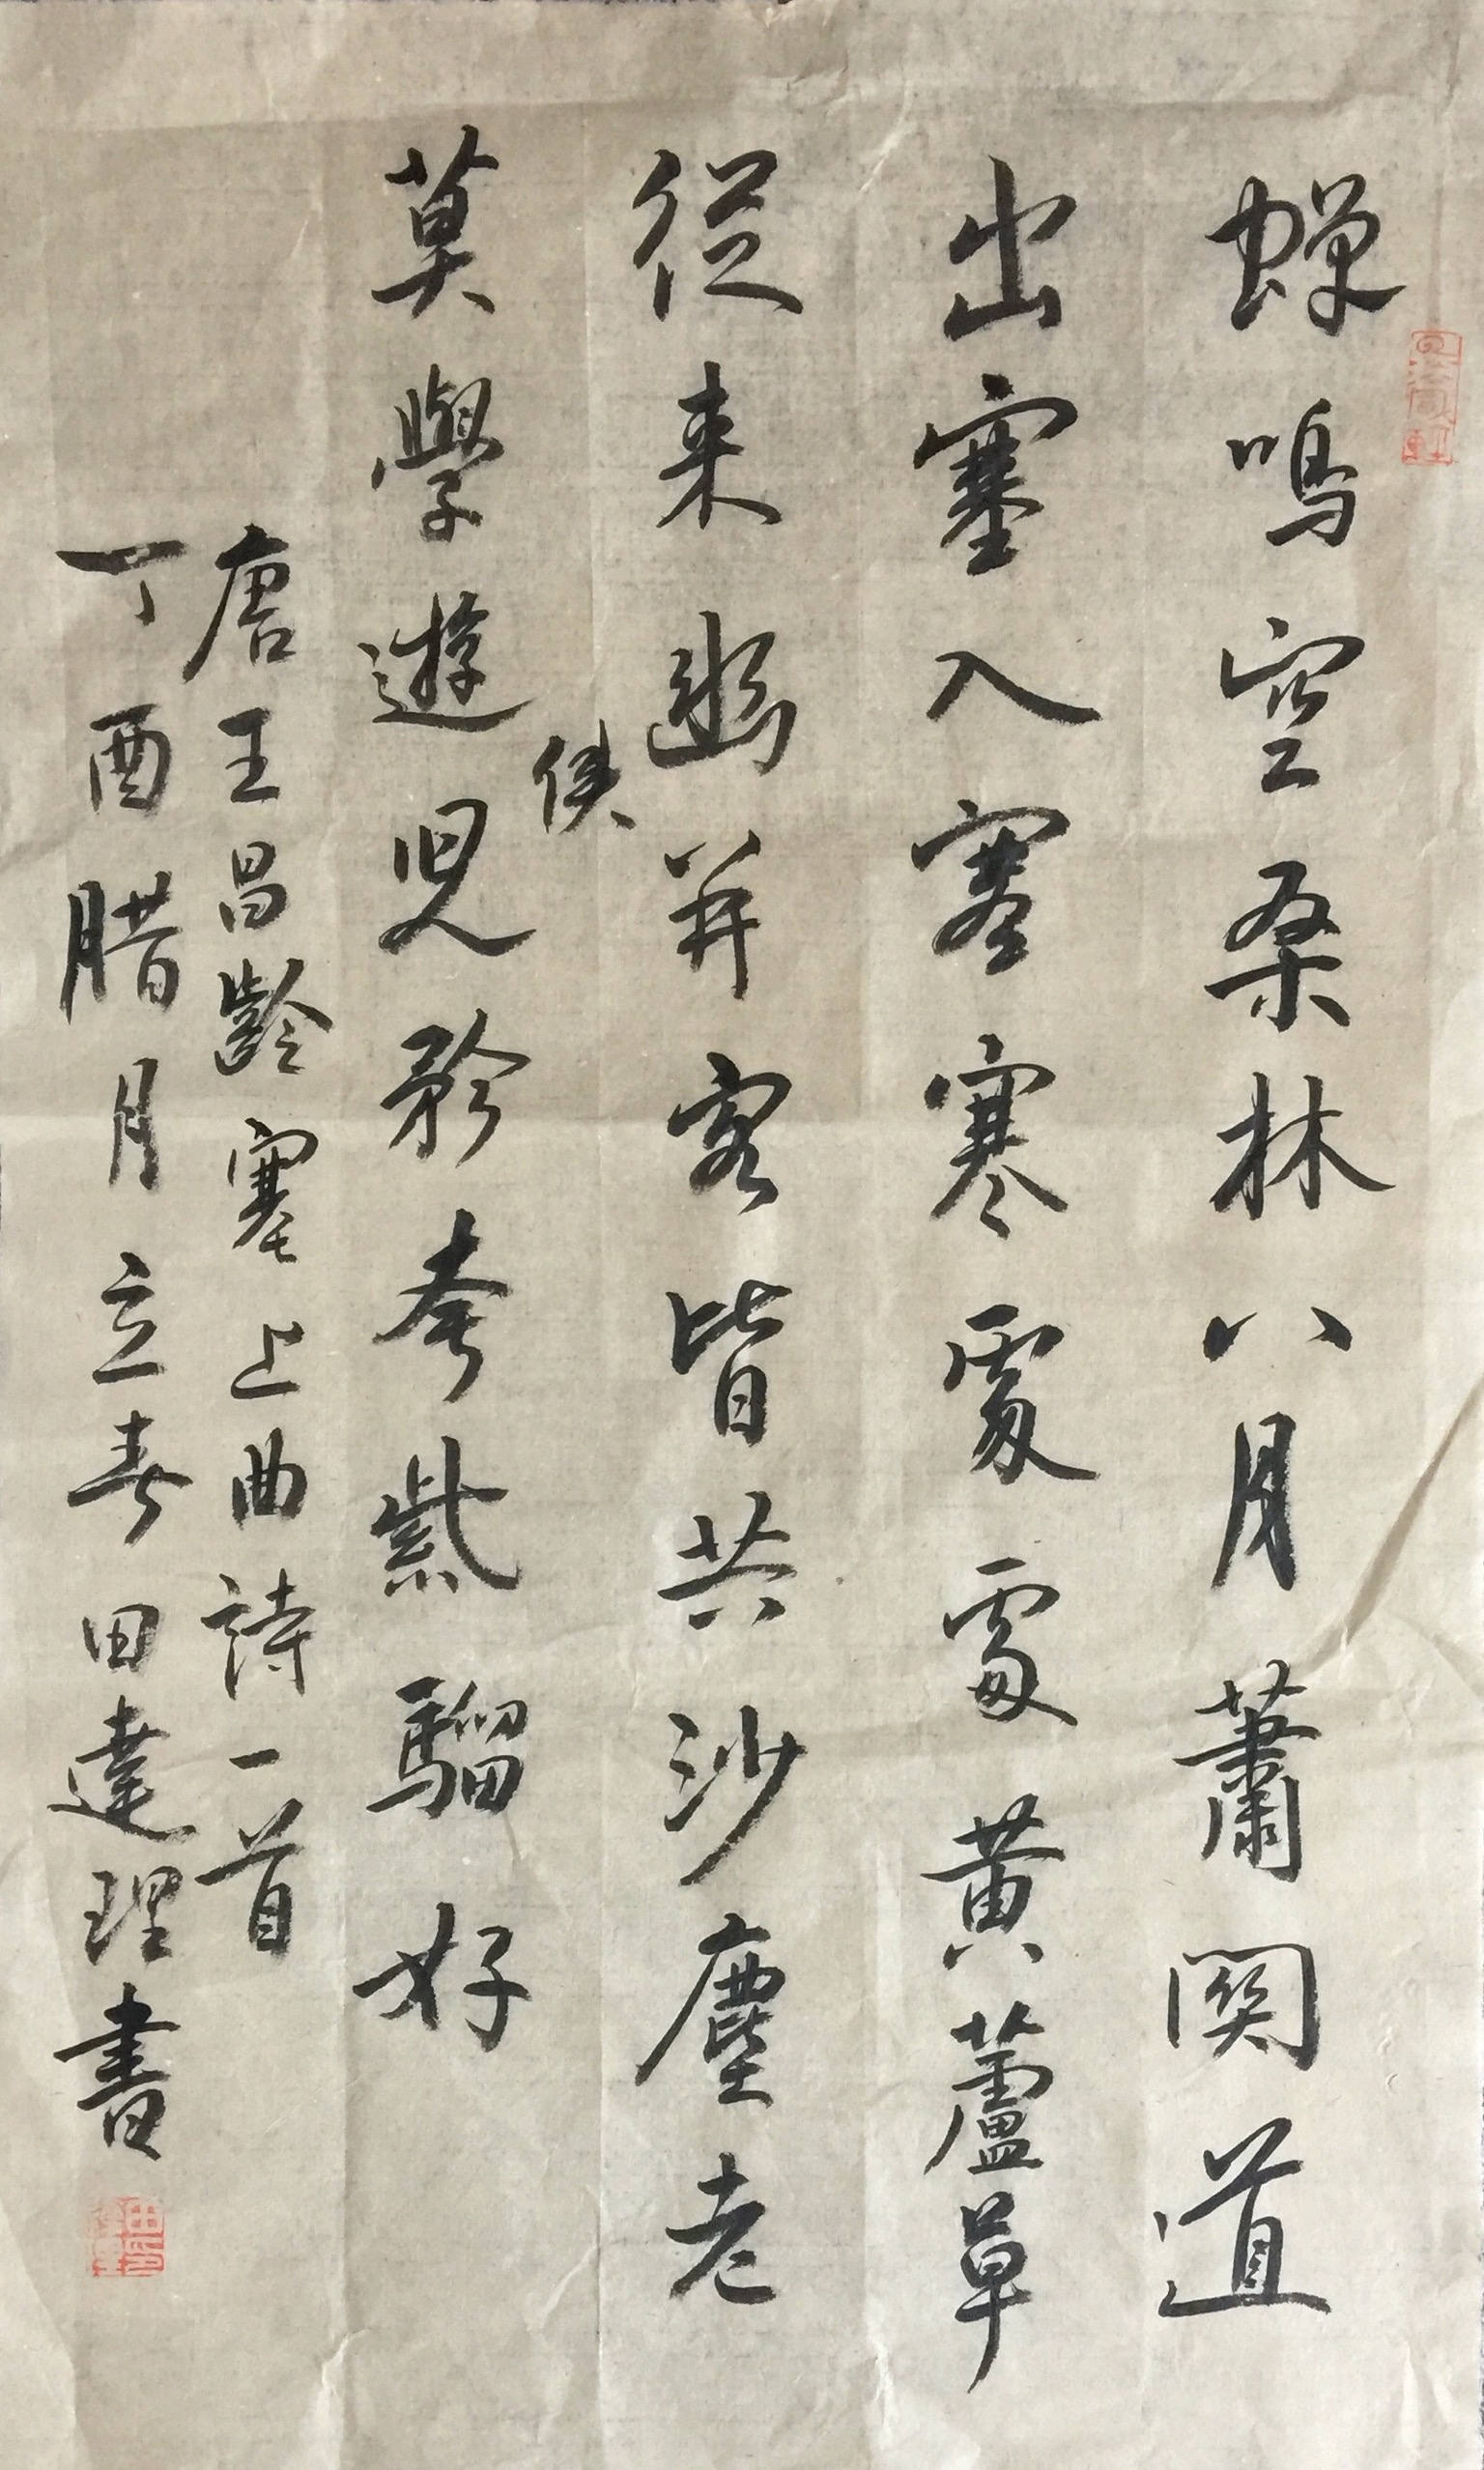 蟬鳴空桑林八月蕭関道
出塞入塞寒處處黃蘆草
從来幽并客皆共沙塵老
莫學遊俠兒矜夸紫騮好
唐王昌齡塞上曲詩一首
丁酉腊月立春田達理書